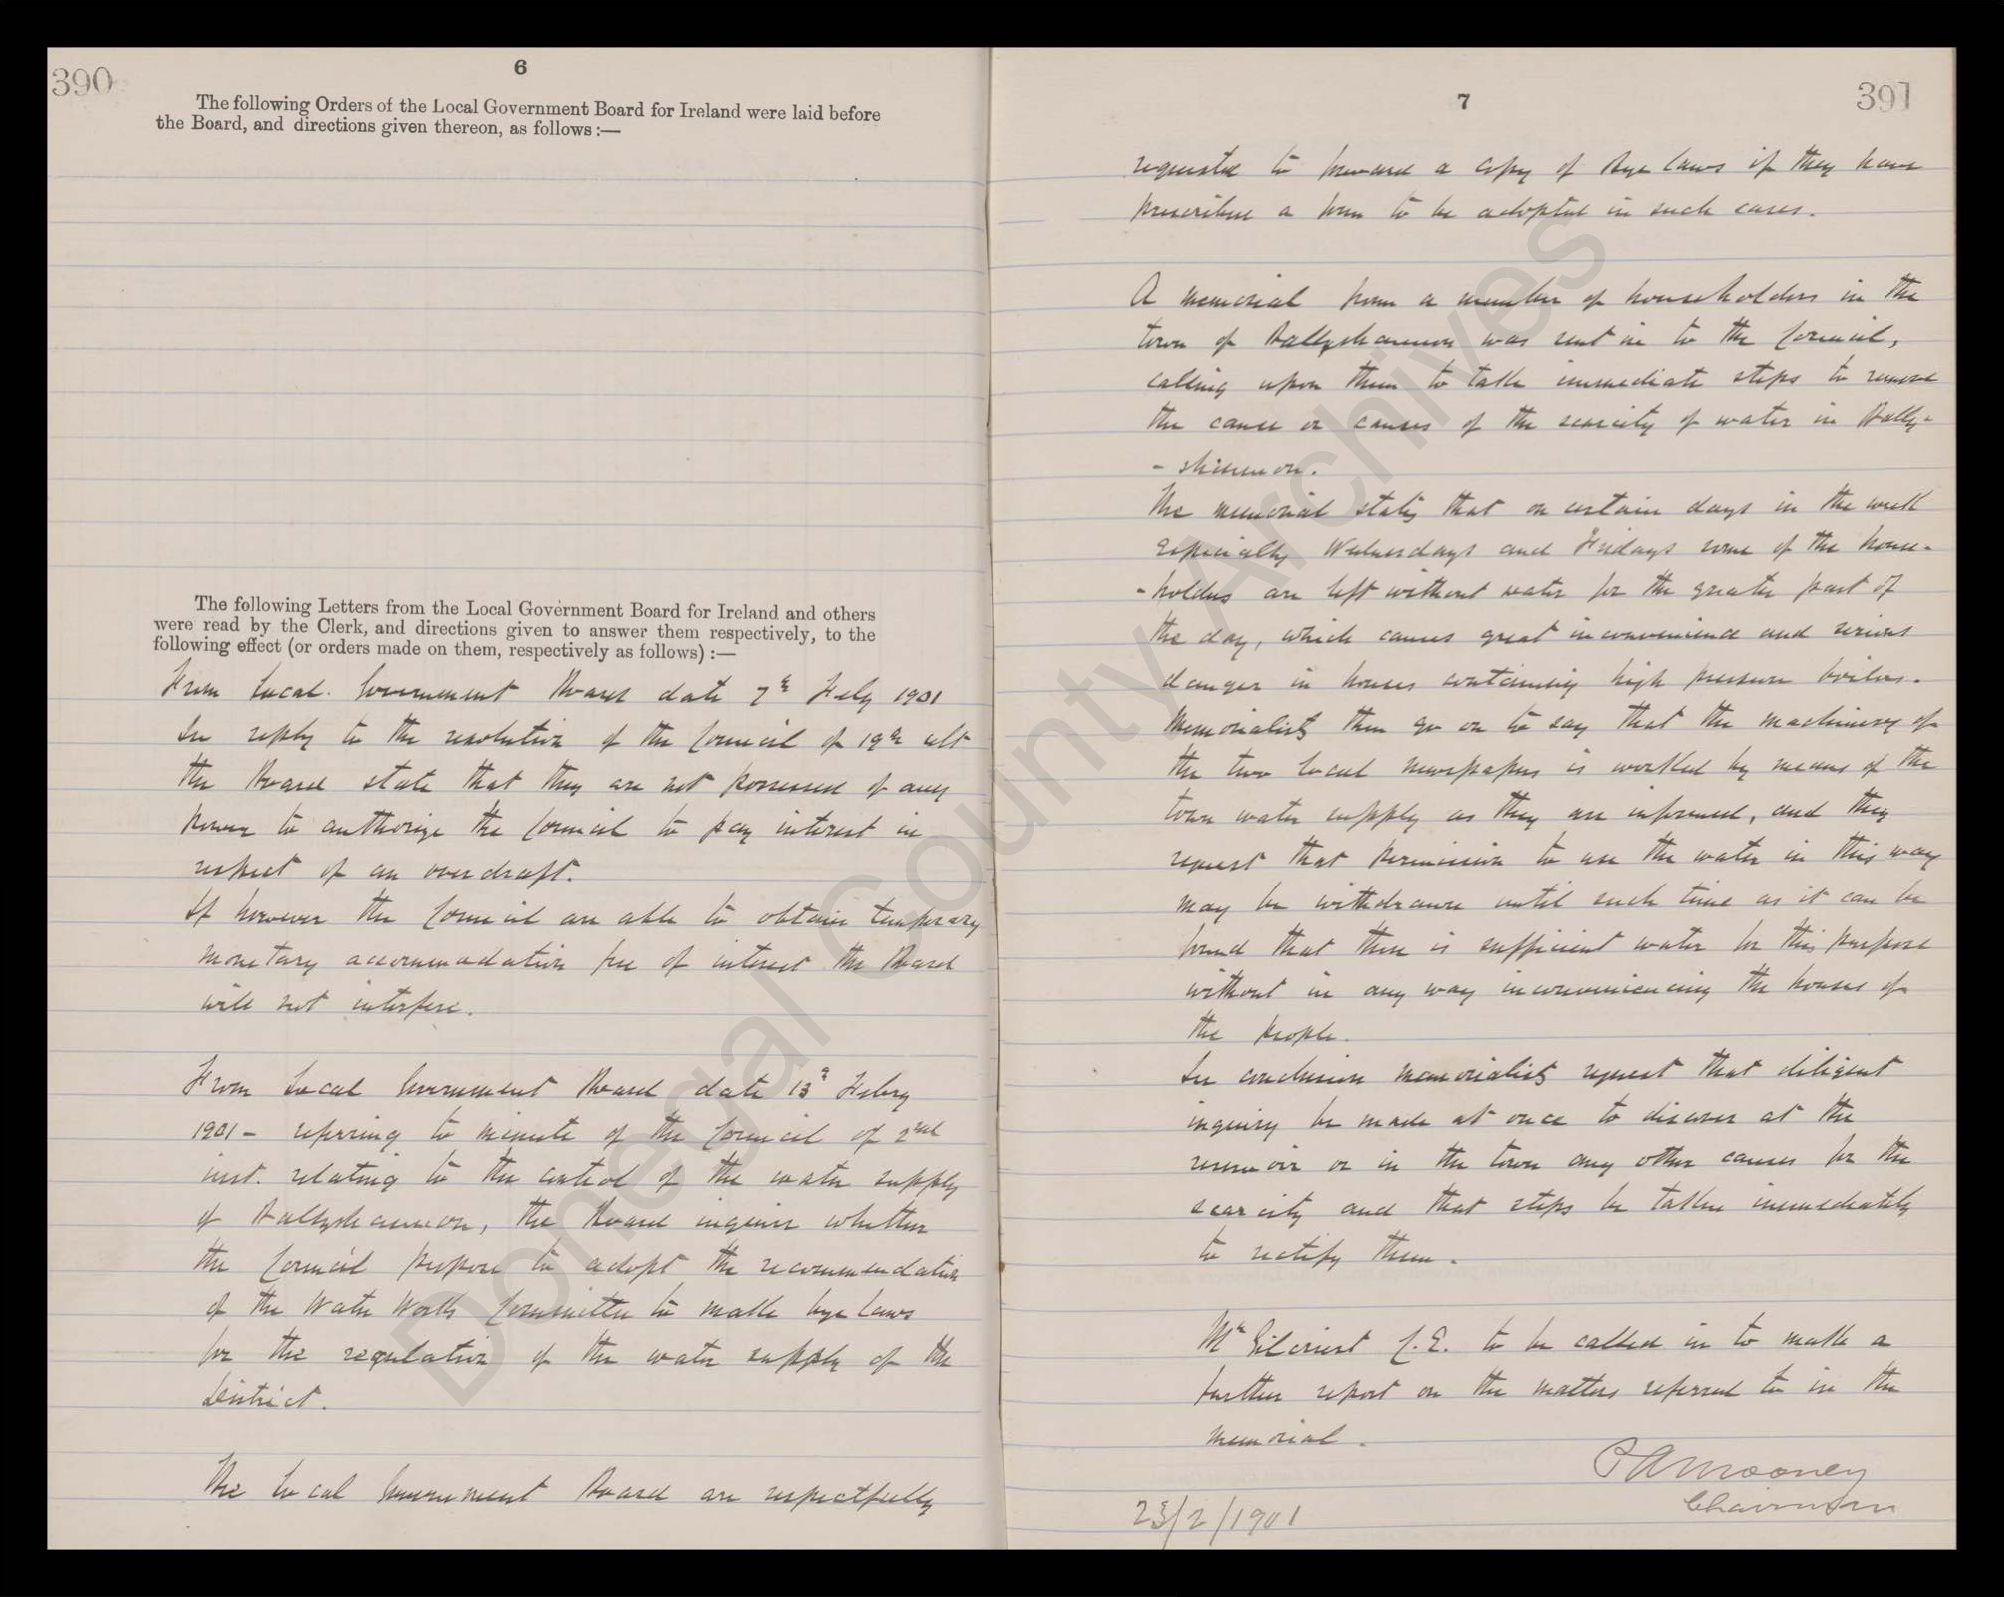 390
6
The following Orders of the Local Government Board for Ireland were laid before
the Board, and directions given thereon, as follows :—
The following Letters from the Local Government Board for Ireland and others
were read by the Clerk, and directions given to answer them respectively, to the
following effect (or orders made on them, respectively as follows) :—
From Local Government Board date 7th Feby 1901
In reply to the resolution of the Council of 19th ult
the Board state that they are not possessed of any
power to authorize the Council to pay interest in
respect of an overdraft.
If however the Council are able to obtain temporary
monetary accommodation free of interest the Board
will not interfere.
From Local Government Board date 13th Febry
1901 - referring to minute of the Council of 2nd
inst. relating to the control of the water supply
of Ballyshannon, the Board inquire whether
the Council propose to adopt the recommendation
of the Water Works Committee to make bye laws
for the regulation of the water supply of the
District.
The Local Government Board are respectfully
7
391
requested to forward a copy of Bye Laws if they have
prescribed a form to be adopted in such cases.
A memorial from a number of householders in the
town of Ballyshannon was sent in to the Council,
calling upon them to take immediate steps to remove
the cause or causes of the scarcity of water in Bally-
- shannon.
The memorial states that on certain days in the week
especially Wednesdays and Fridays some of the house-
- holders are left without water for the greater part of
the day, which causes great inconvenience and serious
danger in houses containing high pressure boilers.
Memorialists then go on to say that the machinery of
the two local newspapers is worked by means of the
town water supply as they are informed, and they
request that permission to use the water in this way
may be withdrawn until such time as it can be
found that there is sufficient water for this purpose
without in any way inconveniencing the houses of
the people.
In conclusion memorialists request that diligent
inquiry be made at once to discover at the
reservoir or in the town any other causes for the
scarcity and that steps be taken immediately
to rectify them.
Mr Gilcriest C.E. to be called in to make a
further report on the matters referred to in the
memorial.
P A Mooney
Chairman
23/2/1901
Donegal County Archives